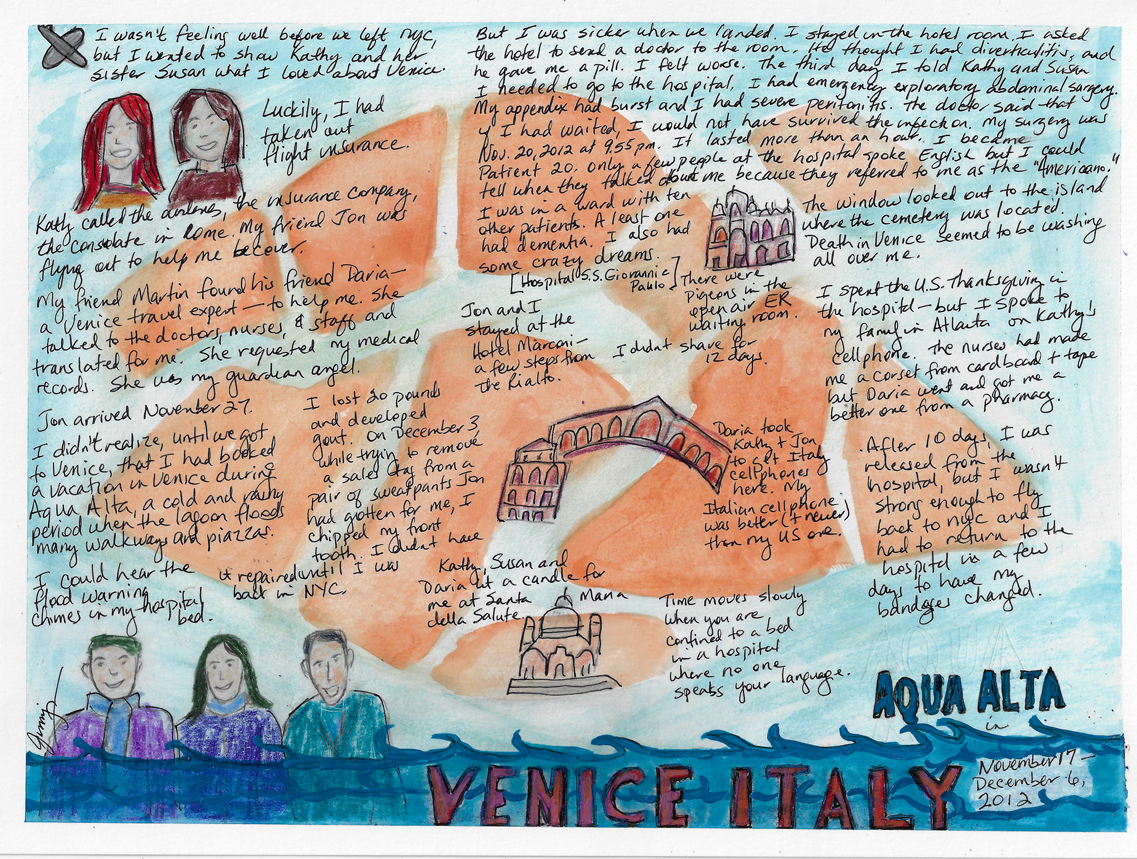 I wasn't feeling well before we left NYC,
but I wanted to show Kathy and her
sister Susan what I loved about Venice.
Luckily, I had
taken out
flight insurance.
Kathy called the airlines, the insurance company,
the consolate in Rome. My friend Jon was
flying out to help me recover.
My friend Martin found his friend Daria—
a Venice travel expert — to help me. She
talked to the doctors, nurses, & staff and
translated for me. She requested my medical
records. She was my guardian angel.
Jon arrived November 27.
I didn't realize, until we got
to Venice, that I had booked
a vacation in Venice during
Aqua Alta, a cold and rainy
period when the lagoon floods
many walkways and piazzas.
I could hear the
flood warning
chimes in my hospital
bed.
But I was sicker when we landed. I stayed in the hotel room. I asked
the hotel to send a doctor to the room. He thought I had diverticulitis, and
he gave me a pill. I felt worse. The third day I told Kathy and Susan
I needed to go to the hospital. I had emergency exploratory abdominal surgery.
My appendix had burst and I had severe peritonitis. The doctor said that
if I had waited, I would not have survived the infection. My surgery was
Nov. 20, 2012 at 9:55 pm. It lasted more than an hour. I became
Patient 20. Only a few people at the hospital spoke English but I could
tell when they talked about me because they referred to me as the "Americano."
I was in a ward with ten
other patients. A least one
had dementia. I also had
some crazy dreams.
[Hospital S.S. Giorannie
Paulo]
The window looked out to the island
where the cemetery was located.
Death in Venice seemed to be washing
all over me.
There were
pigeons in the
open air ER
waiting room.
I didn't shave for
12 days.
Jon and I
stayed at the
Hotel Marconi—
a few steps from
the Rialto.
I spent the U.S. Thanksgiving in
the hospital — but I spoke to
my family in Atlanta on Kathy's
cellphone. The nurses had made
me a corset from cardboard + tape
but Daria went and got me a
better one from a pharmacy.
I lost 20 pounds
and developed
gout. On December 3,
while trying to remove
a sales tag from a
pair of sweatpants Jon
had gotten for me, I
chipped my front
tooth. I didn't have
it repaired until I was
back in NYC.
Daria took
Kathy & Jon
to get Italy
cellphones
here. My
Italian cellphone
was better (+ newer)
than my US one.
After 10 days, I was
released from the
hospital, but I wasn't
strong enough to fly
back to NYC and I
had to return to the
hospital in a few
days to have my
bandages changed.
Kathy, Susan and
Daria lit a candle for
me at Santa Maria
della Salute.
Time moves slowly
when you are
confined to a bed
in a hospital
where no one
speaks your language.
AQUA ALTA
in
VENICE ITALY
November 17 —
December 6,
2012